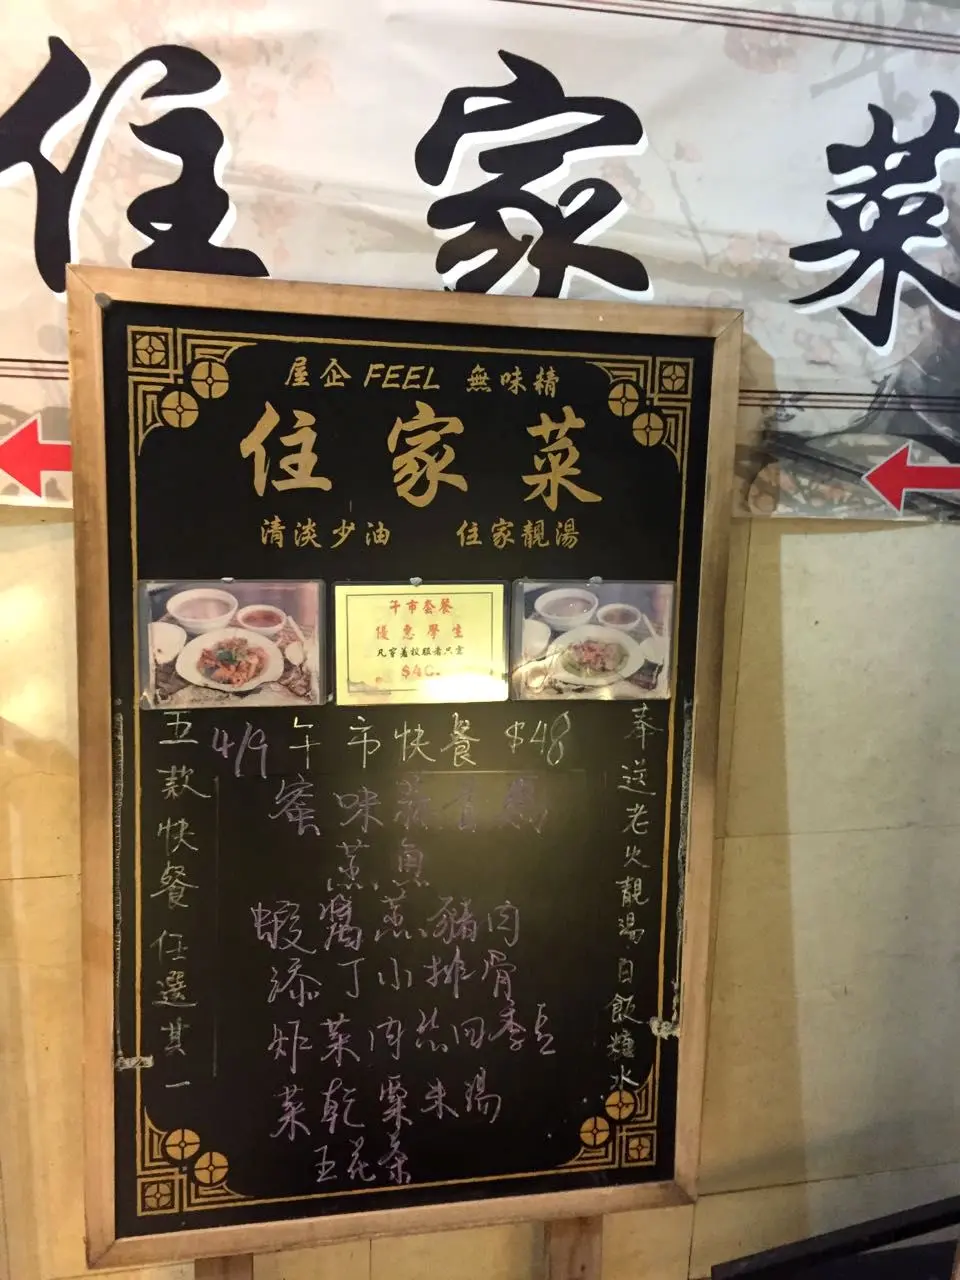 住家菜
屋企 FEEL 無味精
住家菜
清淡少油 住家靚湯
午市套餐
優惠學生
凡穿着校服者只需
$40.
4/9 午市快餐 $48
五款快餐任選其一
蜜味蒜香鷄
蒸魚
蝦醬蒸豬肉
添丁小排骨
炸菜肉丝四季豆
菜乾粟米湯
五花茶
奉送老火靚湯白飯糖水